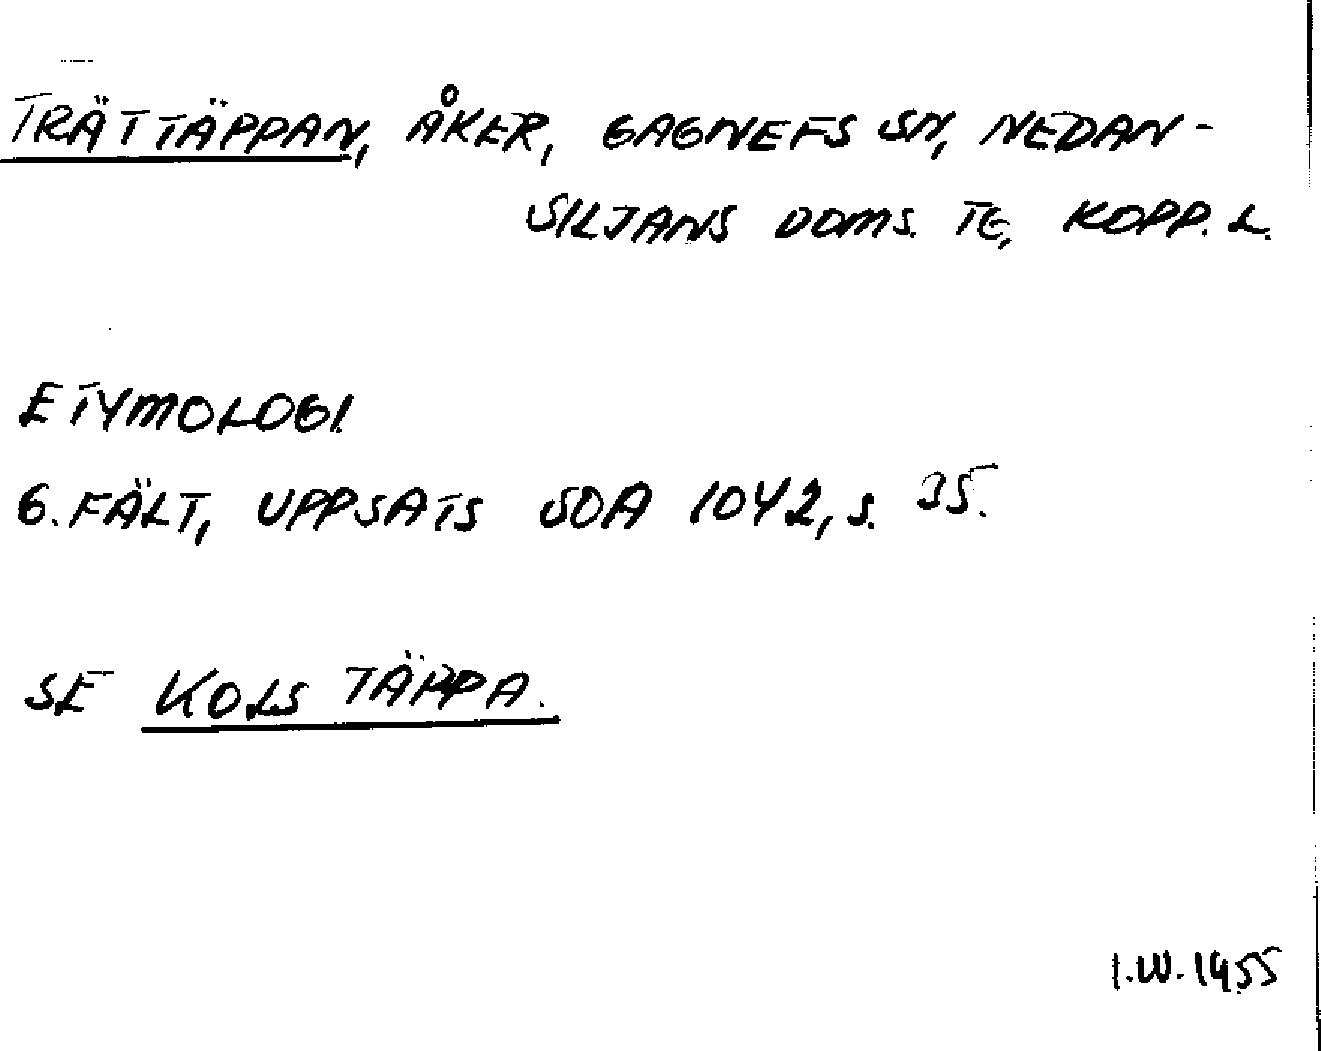 TRÄTTÄPPAN, ÅKER, GAGNEFS SN, NEDAN-
SILJANS DOMS. TG, KOPP. L.
ETYMOLOGI
G. FÄLT, UPPSATS SOA 1042, S. 35.
SE KOLS TÄPPA.
I.W. 1955